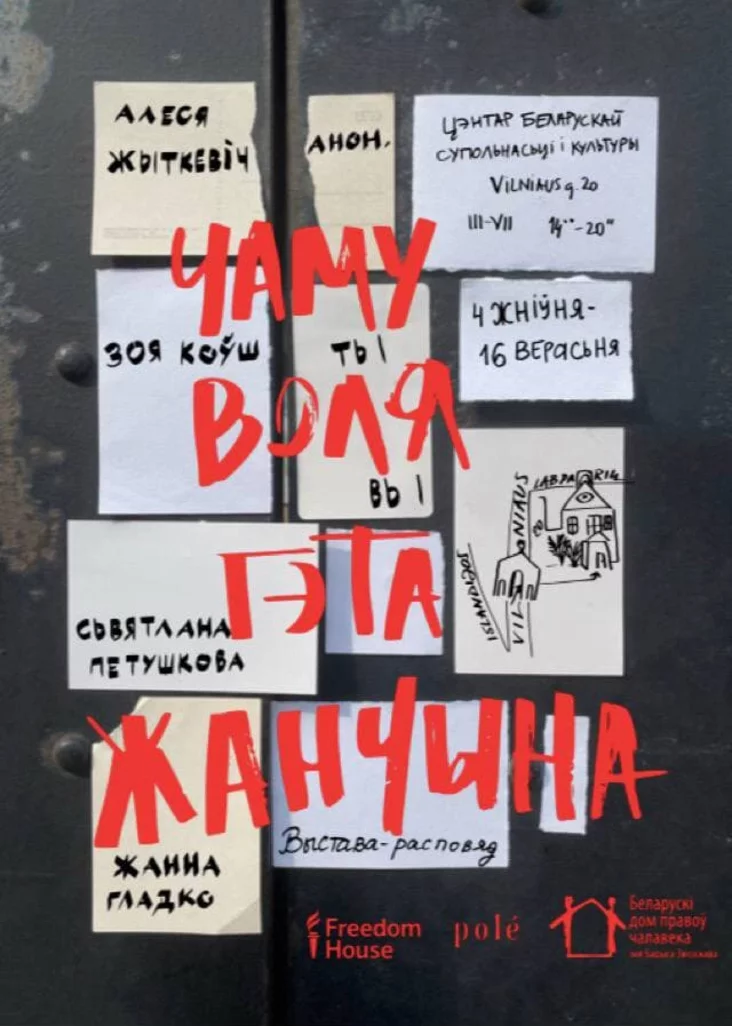 АЛЕСЯ
ЖЫТКЕВІЧ
АНОН.
ЦЭНТАР БЕЛАРУСКАЙ
СУПОЛЬНАСЬЦІ І КУЛЬТУРЫ
VILNIAUS g. 20
III-VII 14⁰⁰-20⁰⁰
ЧАМУ
ЗОЯ КОЎШ
ТЫ
4 ЖНІЎНЯ-
16 ВЕРАСЬНЯ
ВОЛЯ
ВЫ
LABDARIŲ
VILNIAUS
ISLANDIJOS
ГЭТА
СЬВЯТЛАНА
ПЕТУШКОВА
ЖАНЧЫНА
Выстава-расповяд
ЖАННА
ГЛАДКО
Freedom
House
polé
Беларускі
дом правоў
чалавека